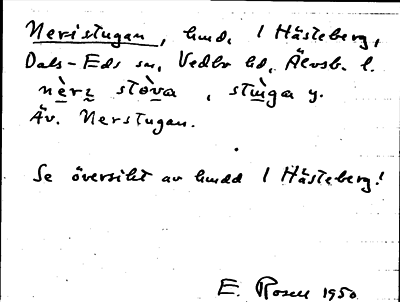 Neristugan, hmd, 1 Hästeberg,
Dals-Eds sn, Vedbo hd, Älvsb. l.
nèrz stòva, stùga y.
Äv. Nerstugan.
Se översikt av hmdd 1 Hästeberg!
E. Rosell 1950